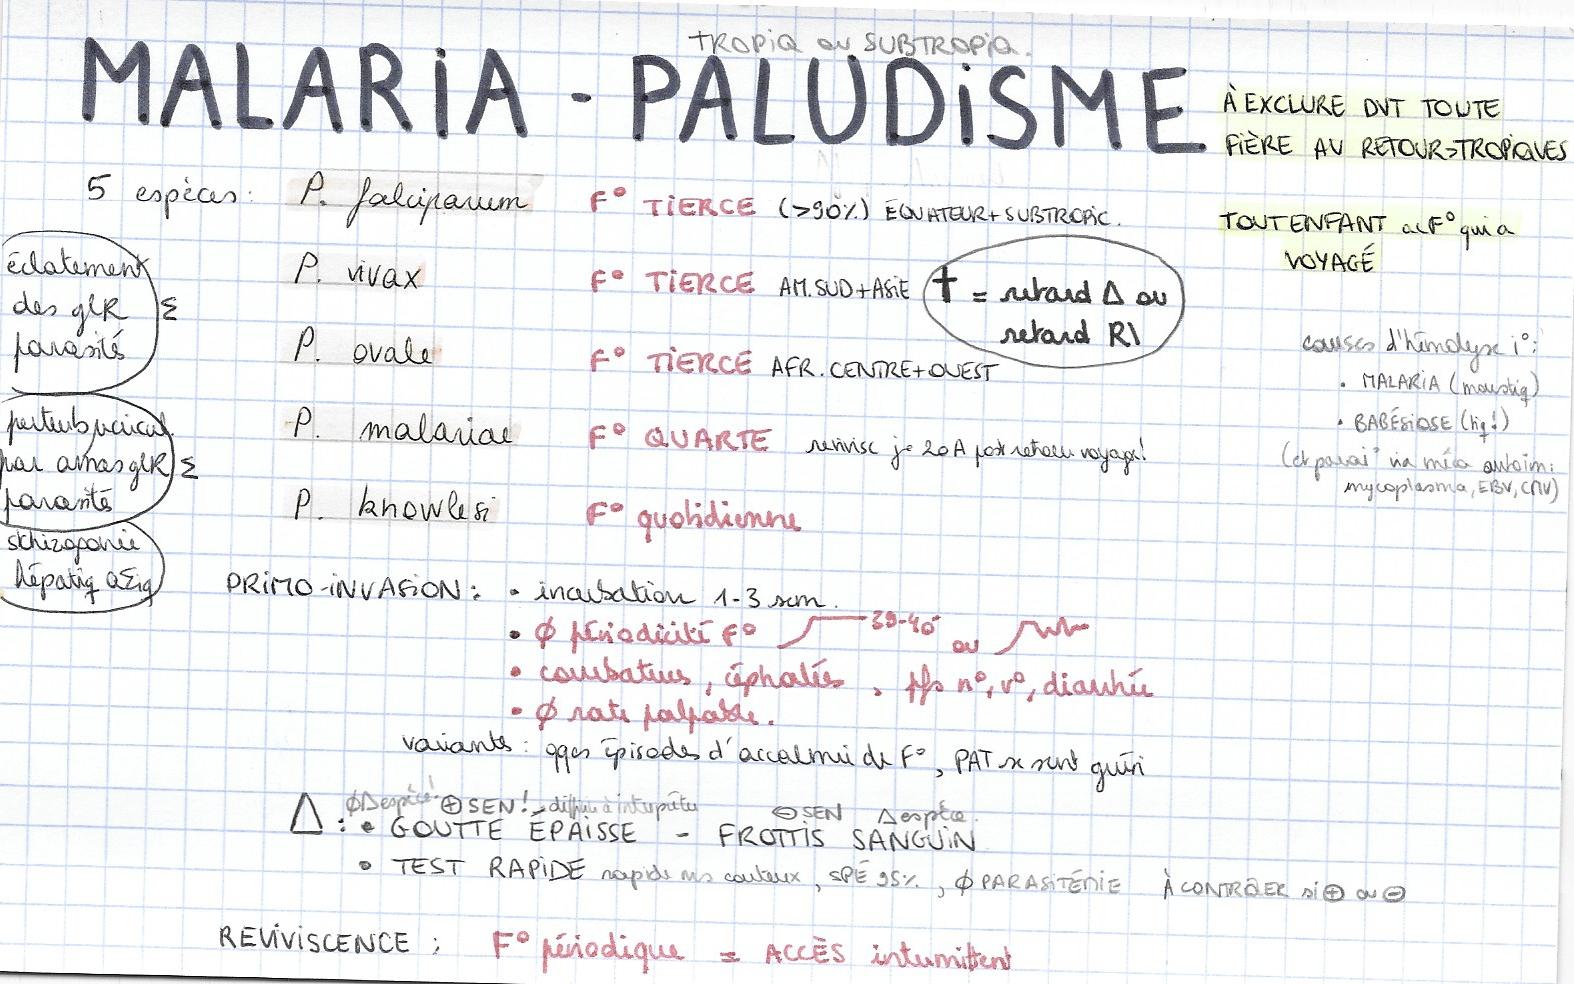 TROPIQ ou SUBTROPIQ.
MALARIA - PALUDISME
À EXCLURE DVT TOUTE
FIÈRE AU RETOUR > TROPIQUES
TOUT ENFANT ac F° qui a
VOYAGÉ
5 espèces: P. falciparum F° TIERCE (>90%) EQUATEUR + SUBTROPIC.
P. vivax F° TIERCE AM. SUD + ASIE
P. ovale F° TIERCE AFR. CENTRE + OUEST
P. malariae F° QUARTE revivisc jq 20A post retour voyage!
P. knowlesi F° quotidienne
† = retard Δ ou
retard R\
éclatement
des glR
parasité Σ
perturb µcircul.
par amas glR Σ
parasité
schizogonie
hépatiq aΣiq
causes d'hémolyse i°:
• MALARIA (moustiq)
• BABÉSIOSE (tiq!)
(et parai° via méca autoim:
mycoplasma, EBV, CMV)
PRIMO-INVASION: • incubation 1-3 sem.
• ∅ périodicité F° 39-40° ou
• courbatures, céphalées, pfs n°, v°, diarrhée
• ∅ rate palpable.
variants: qqes épisodes d'accalmie de F°, PAT se sent guéri
∅ Δ espèce! ⊕ SEN! diffic à interpréter ⊖ SEN Δ espèce.
Δ: • GOUTTE ÉPAISSE - FROTTIS SANGUIN
• TEST RAPIDE rapide ms couteux, SPÉ 95%, ∅ PARASITÉMIE À CONTRÔLER si ⊕ ou ⊖
REVIVISCENCE: F° périodique = ACCÈS intermittent